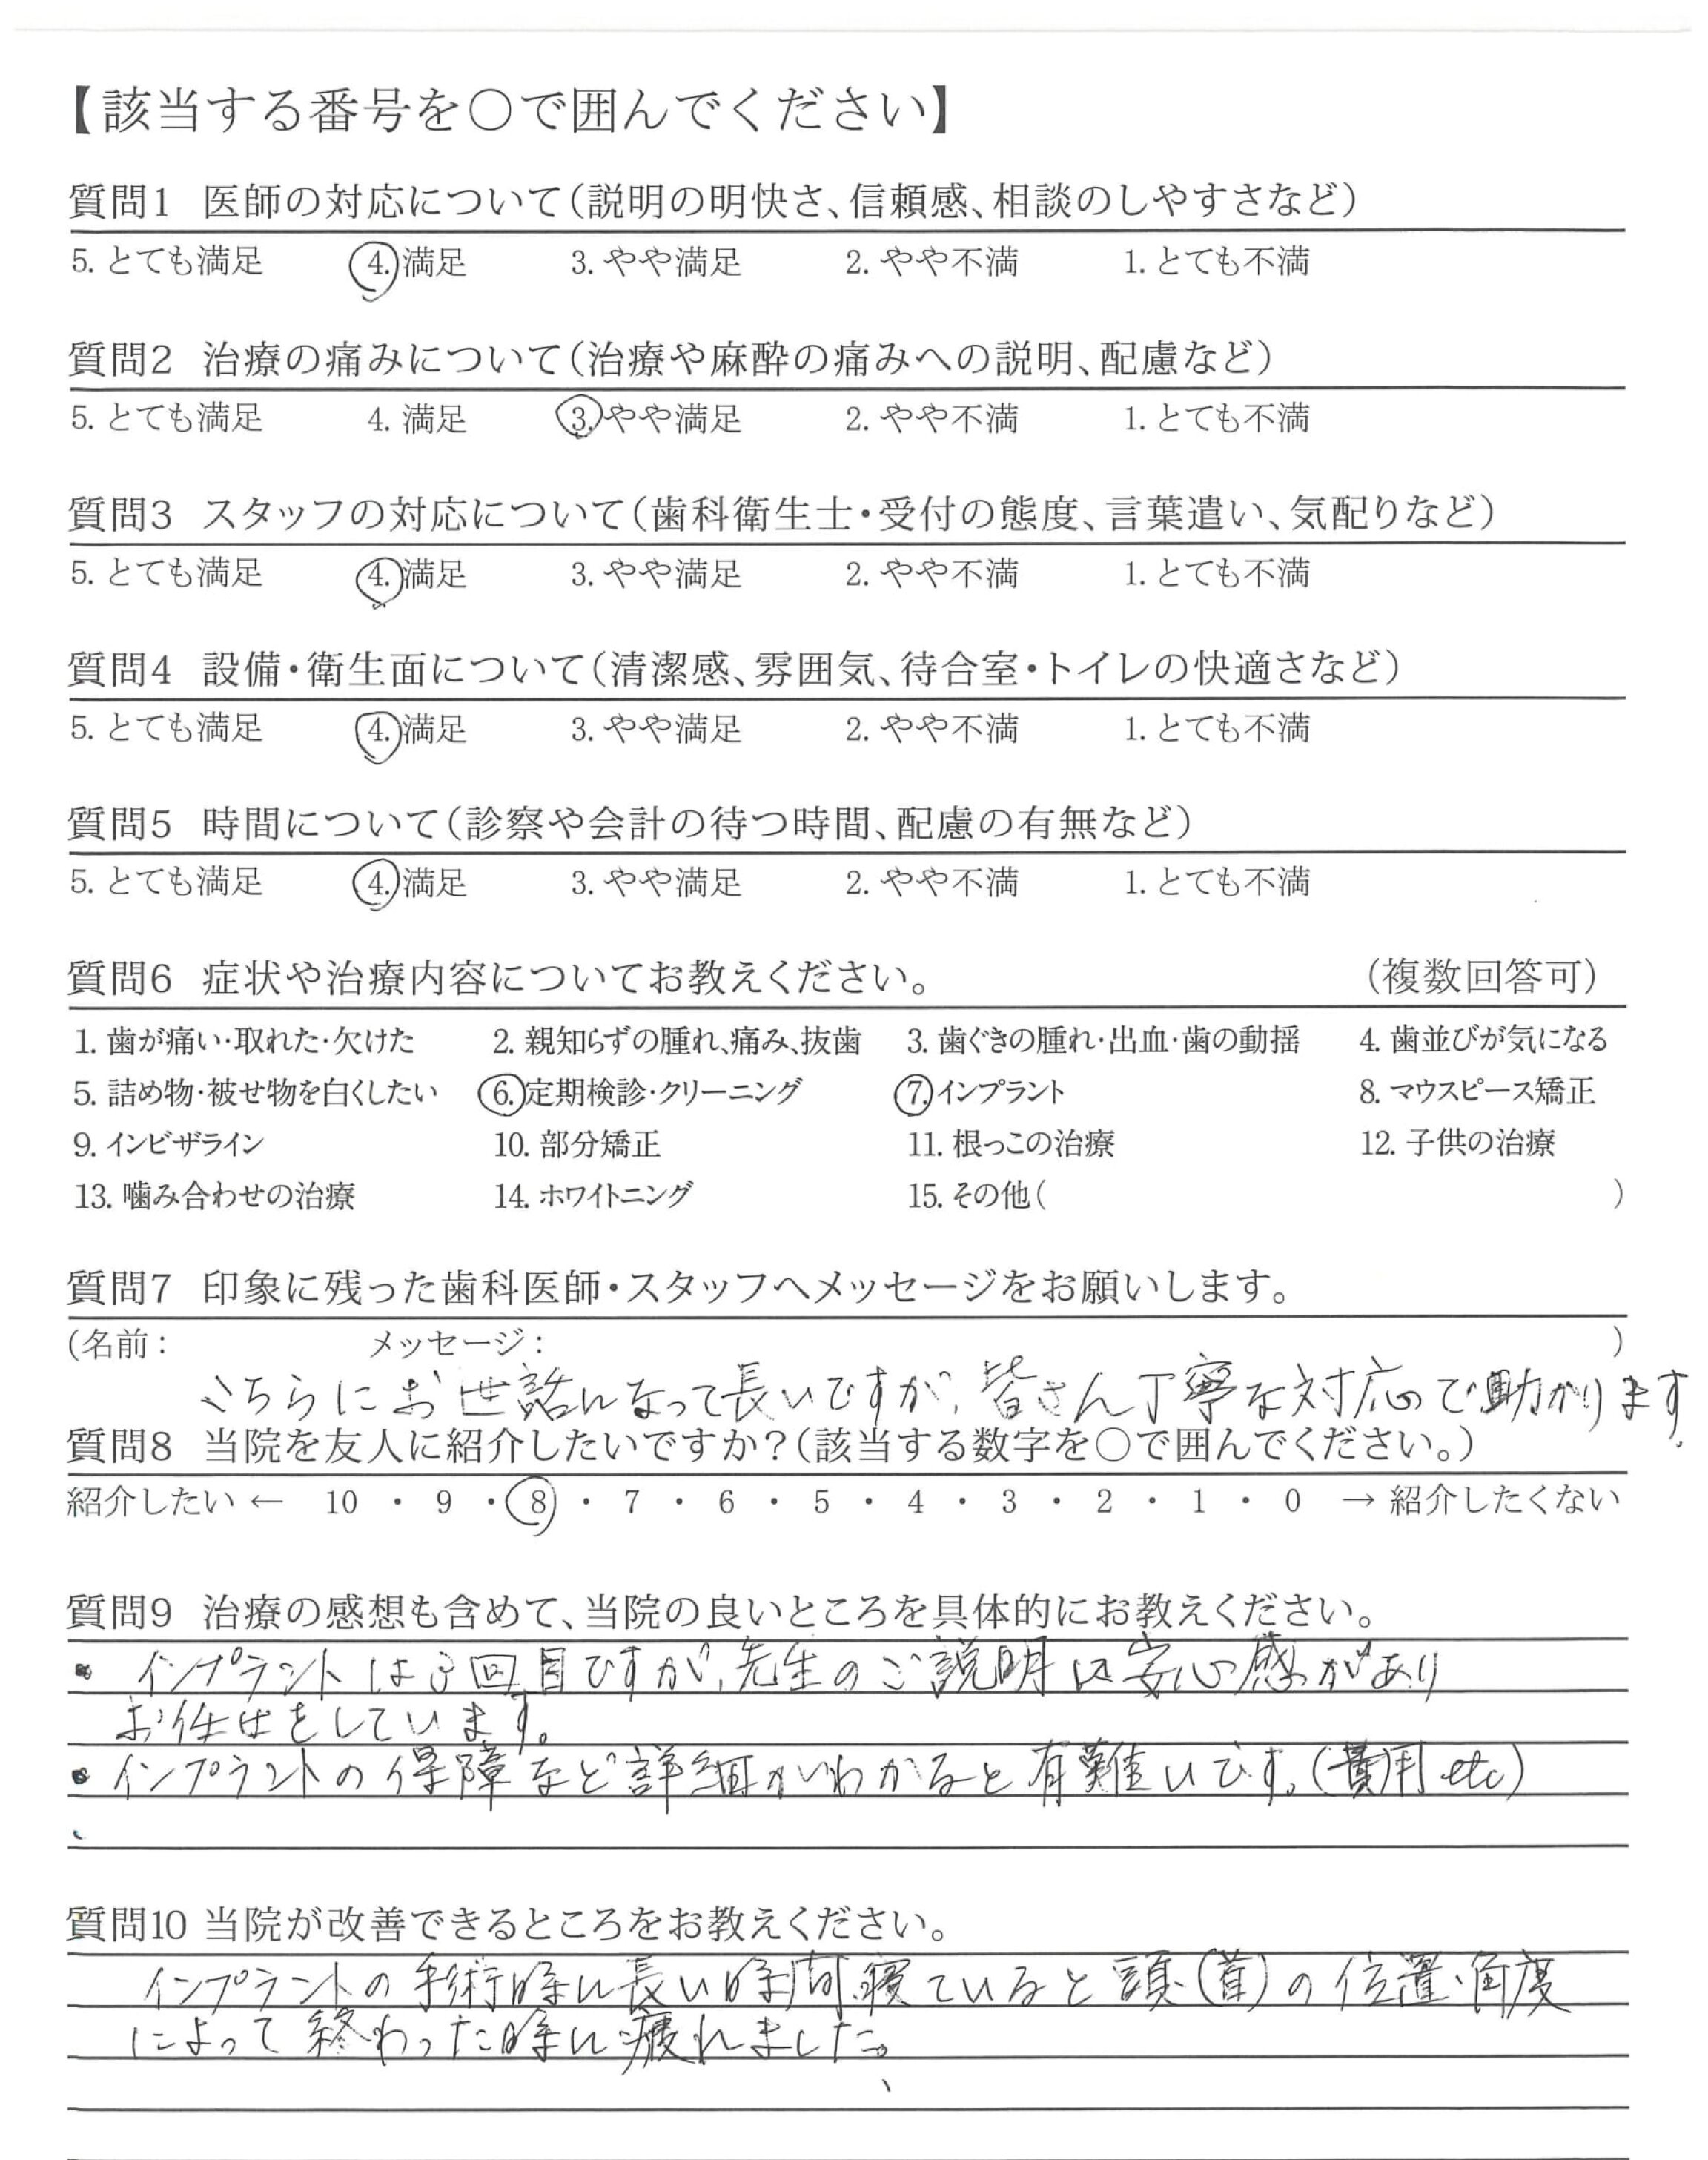 【該当する番号を○で囲んでください】
質問1 医師の対応について(説明の明快さ、信頼感、相談のしやすさなど)
5. とても満足 4. 満足 3. やや満足 2. やや不満 1. とても不満
質問2 治療の痛みについて(治療や麻酔の痛みへの説明、配慮など)
5. とても満足 4. 満足 3. やや満足 2. やや不満 1. とても不満
質問3 スタッフの対応について(歯科衛生士・受付の態度、言葉遣い、気配りなど)
5. とても満足 4. 満足 3. やや満足 2. やや不満 1. とても不満
質問4 設備・衛生面について(清潔感、雰囲気、待合室・トイレの快適さなど)
5. とても満足 4. 満足 3. やや満足 2. やや不満 1. とても不満
質問5 時間について(診察や会計の待つ時間、配慮の有無など)
5. とても満足 4. 満足 3. やや満足 2. やや不満 1. とても不満
質問6 症状や治療内容についてお教えください。 (複数回答可)
1. 歯が痛い・取れた・欠けた 2. 親知らずの腫れ、痛み、抜歯 3. 歯ぐきの腫れ・出血・歯の動揺 4. 歯並びが気になる
5. 詰め物・被せ物を白くしたい 6. 定期検診・クリーニング 7. インプラント 8. マウスピース矯正
9. インビザライン 10. 部分矯正 11. 根っこの治療 12. 子供の治療
13. 噛み合わせの治療 14. ホワイトニング 15. その他( )
質問7 印象に残った歯科医師・スタッフへメッセージをお願いします。
(名前: メッセージ: )
こちらにお世話になって長いですが、皆さん丁寧な対応ので助かります。
質問8 当院を友人に紹介したいですか?(該当する数字を○で囲んでください。)
紹介したい ← 10 ・ 9 ・ 8 ・ 7 ・ 6 ・ 5 ・ 4 ・ 3 ・ 2 ・ 1 ・ 0 → 紹介したくない
質問9 治療の感想も含めて、当院の良いところを具体的にお教えください。
・インプラントは3回目ですが、先生のご説明は安心感があり
お任せをしています。
・インプラントの保障など詳細がわかると有難いです。(費用etc)
質問10 当院が改善できるところをお教えください。
インプラントの手術時に長い時間寝ていると頭(首)の位置・角度
によって終わった時に疲れました。